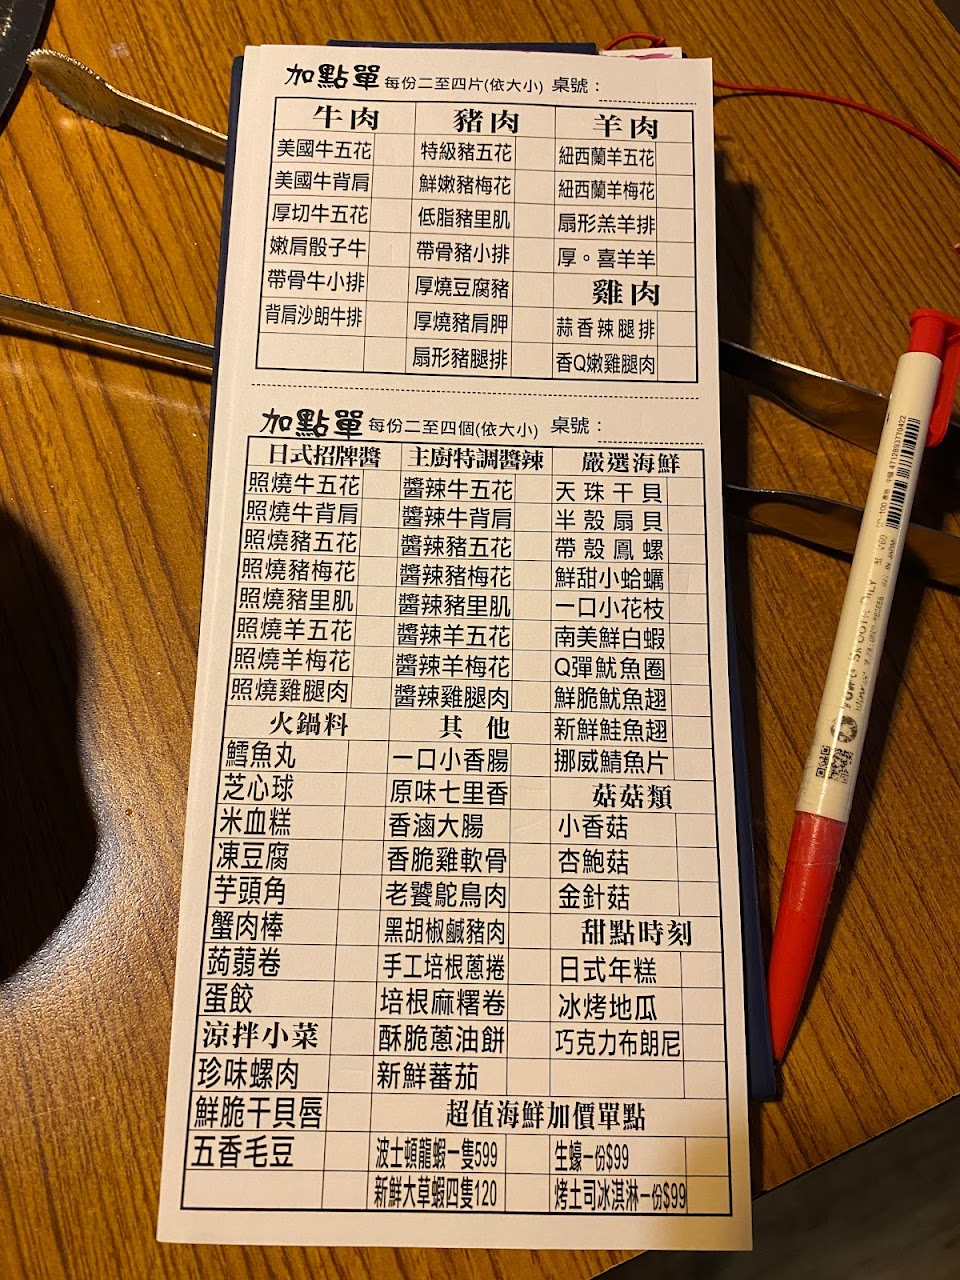 加點單 每份二至四片(依大小) 桌號：
牛肉 豬肉 羊肉
美國牛五花 特級豬五花 紐西蘭羊五花
美國牛背肩 鮮嫩豬梅花 紐西蘭羊梅花
厚切牛五花 低脂豬里肌 扇形羔羊排
嫩肩骰子牛 帶骨豬小排 厚。喜羊羊
帶骨牛小排 厚燒豆腐豬 雞肉
背肩沙朗牛排 厚燒豬肩胛 蒜香辣腿排
扇形豬腿排 香Q嫩雞腿肉
加點單 每份二至四個(依大小) 桌號：
日式招牌醬 主廚特調醬辣 嚴選海鮮
照燒牛五花 醬辣牛五花 天珠干貝
照燒牛背肩 醬辣牛背肩 半殼扇貝
照燒豬五花 醬辣豬五花 帶殼鳳螺
照燒豬梅花 醬辣豬梅花 鮮甜小蛤蠣
照燒豬里肌 醬辣豬里肌 一口小花枝
照燒羊五花 醬辣羊五花 南美鮮白蝦
照燒羊梅花 醬辣羊梅花 Q彈魷魚圈
照燒雞腿肉 醬辣雞腿肉 鮮脆魷魚翅
火鍋料 其他 新鮮鮭魚翅
鱈魚丸 一口小香腸 挪威鯖魚片
芝心球 原味七里香 菇菇類
米血糕 香滷大腸 小香菇
凍豆腐 香脆雞軟骨 杏鮑菇
芋頭角 老饕鴕鳥肉 金針菇
蟹肉棒 黑胡椒鹹豬肉 甜點時刻
蒟蒻卷 手工培根蔥捲 日式年糕
蛋餃 培根麻糬卷 冰烤地瓜
涼拌小菜 酥脆蔥油餅 巧克力布朗尼
珍味螺肉 新鮮蕃茄
鮮脆干貝唇 超值海鮮加價單點
五香毛豆 波士頓龍蝦一隻599 生蠔一份$99
新鮮大草蝦四隻120 烤土司冰淇淋一份$99
4712893770422